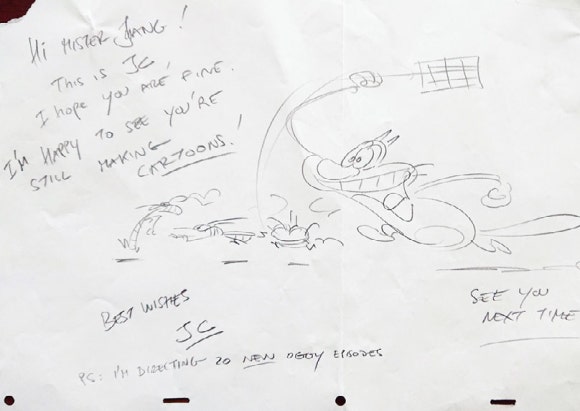 Hi MISTER JIANG!
THIS IS JC,
I HOPE YOU ARE FINE.
I'M HAPPY TO SEE YOU'RE
STILL MAKING
CARTOONS!
BEST WISHES
JC
PS: I'M DIRECTING 20 NEW OGGY EPISODES
SEE YOU
NEXT TIME